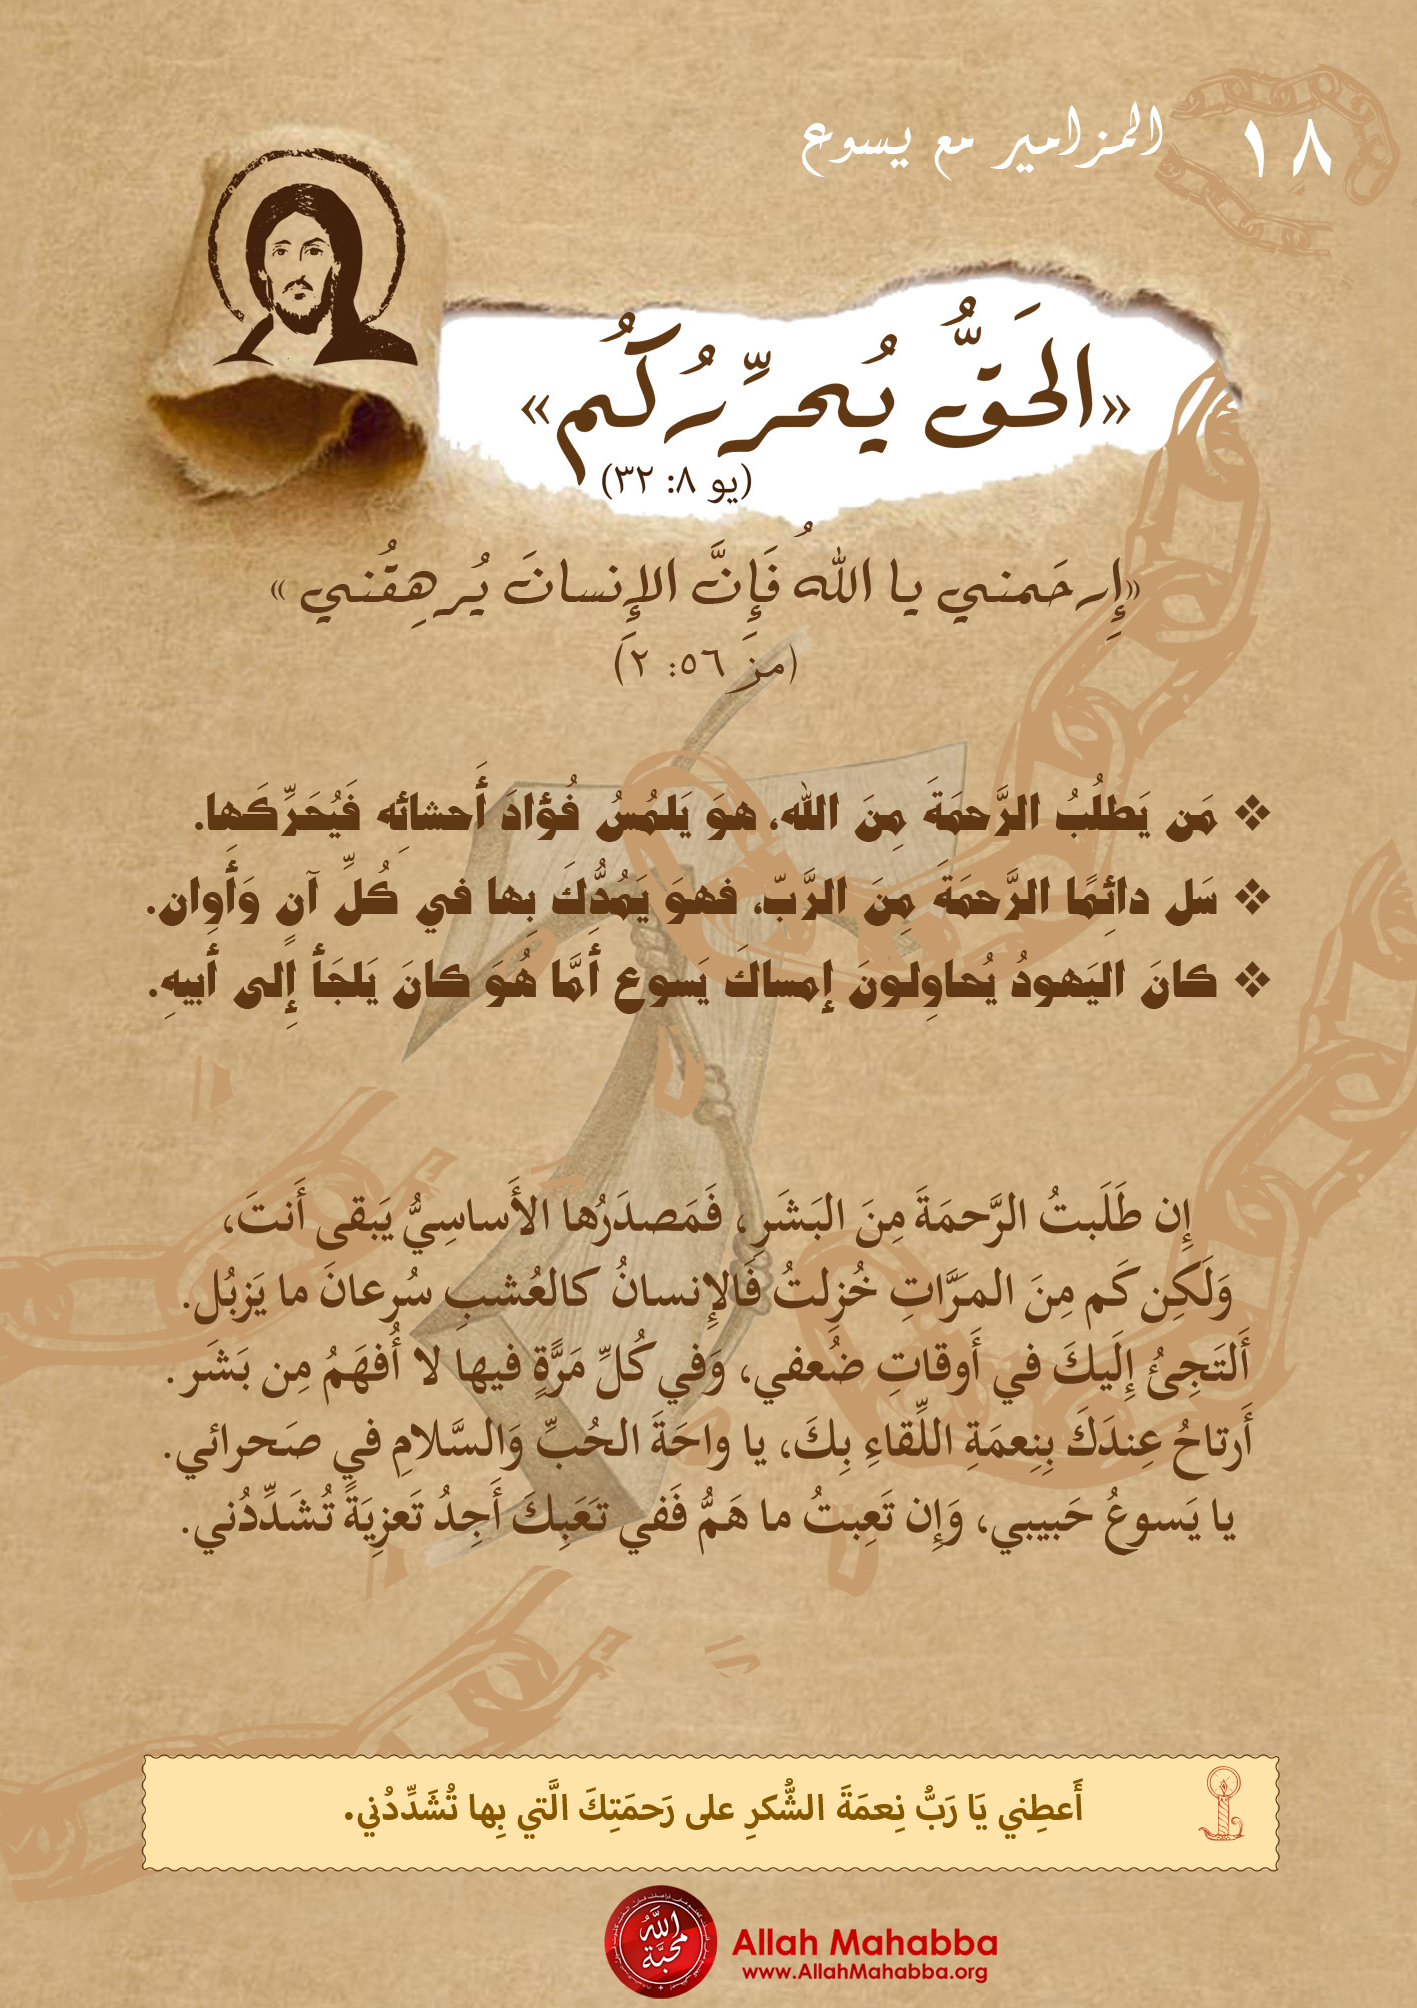 ١٨ المزامير مع يسوع
«الحَقُّ يُحرِّرُكُم»
(يو ٨: ٣٢)
«إِرحَمني يا اللهُ فَإِنَّ الإِنسانَ يُرهِقُني »
(مز ٥٦: ٢)
❖ مَن يَطلُبُ الرَّحمَةَ مِنَ الله، هوَ يَلمُسُ فُؤادَ أَحشائِه فَيُحَرِّكَها.
❖ سَل دائِمًا الرَّحمَةَ مِنَ الرَّبّ، فهوَ يَمُدُّكَ بِها في كُلِّ آنٍ وَأَوان.
❖ كانَ اليَهودُ يُحاوِلونَ إمساكَ يَسوع أمَّا هُوَ كانَ يَلجَأ إِلى أبيهِ.
إِن طَلَبتُ الرَّحمَةَ مِنَ البَشَرِ، فَمَصدَرُها الأَساسِيُّ يَبقى أَنتَ،
وَلَكِن كَم مِنَ المَرَّاتِ خُزِلتُ فَالإِنسانُ كالعُشبِ سُرعانَ ما يَزبُل.
أَلتَجِئُ إِلَيكَ في أَوقاتِ ضُعفي، وَفي كُلِّ مَرَّةٍ فيها لا أُفهَمُ مِن بَشَر.
أَرتاحُ عِندَكَ بِنِعمَةِ اللِّقاءِ بِكَ، يا واحَةَ الحُبِّ وَالسَّلامِ في صَحرائي.
يا يَسوعُ حَبيبي، وَإِن تَعِبتُ ما هَمُّ فَفي تَعَبِكَ أَجِدُ تَعزِيَةً تُشَدِّدُني.
أَعطِني يَا رَبُّ نِعمَةَ الشُّكرِ على رَحمَتِكَ الَّتي بِها تُشَدِّدُني.
الله محبّة
Allah Mahabba
www.AllahMahabba.org